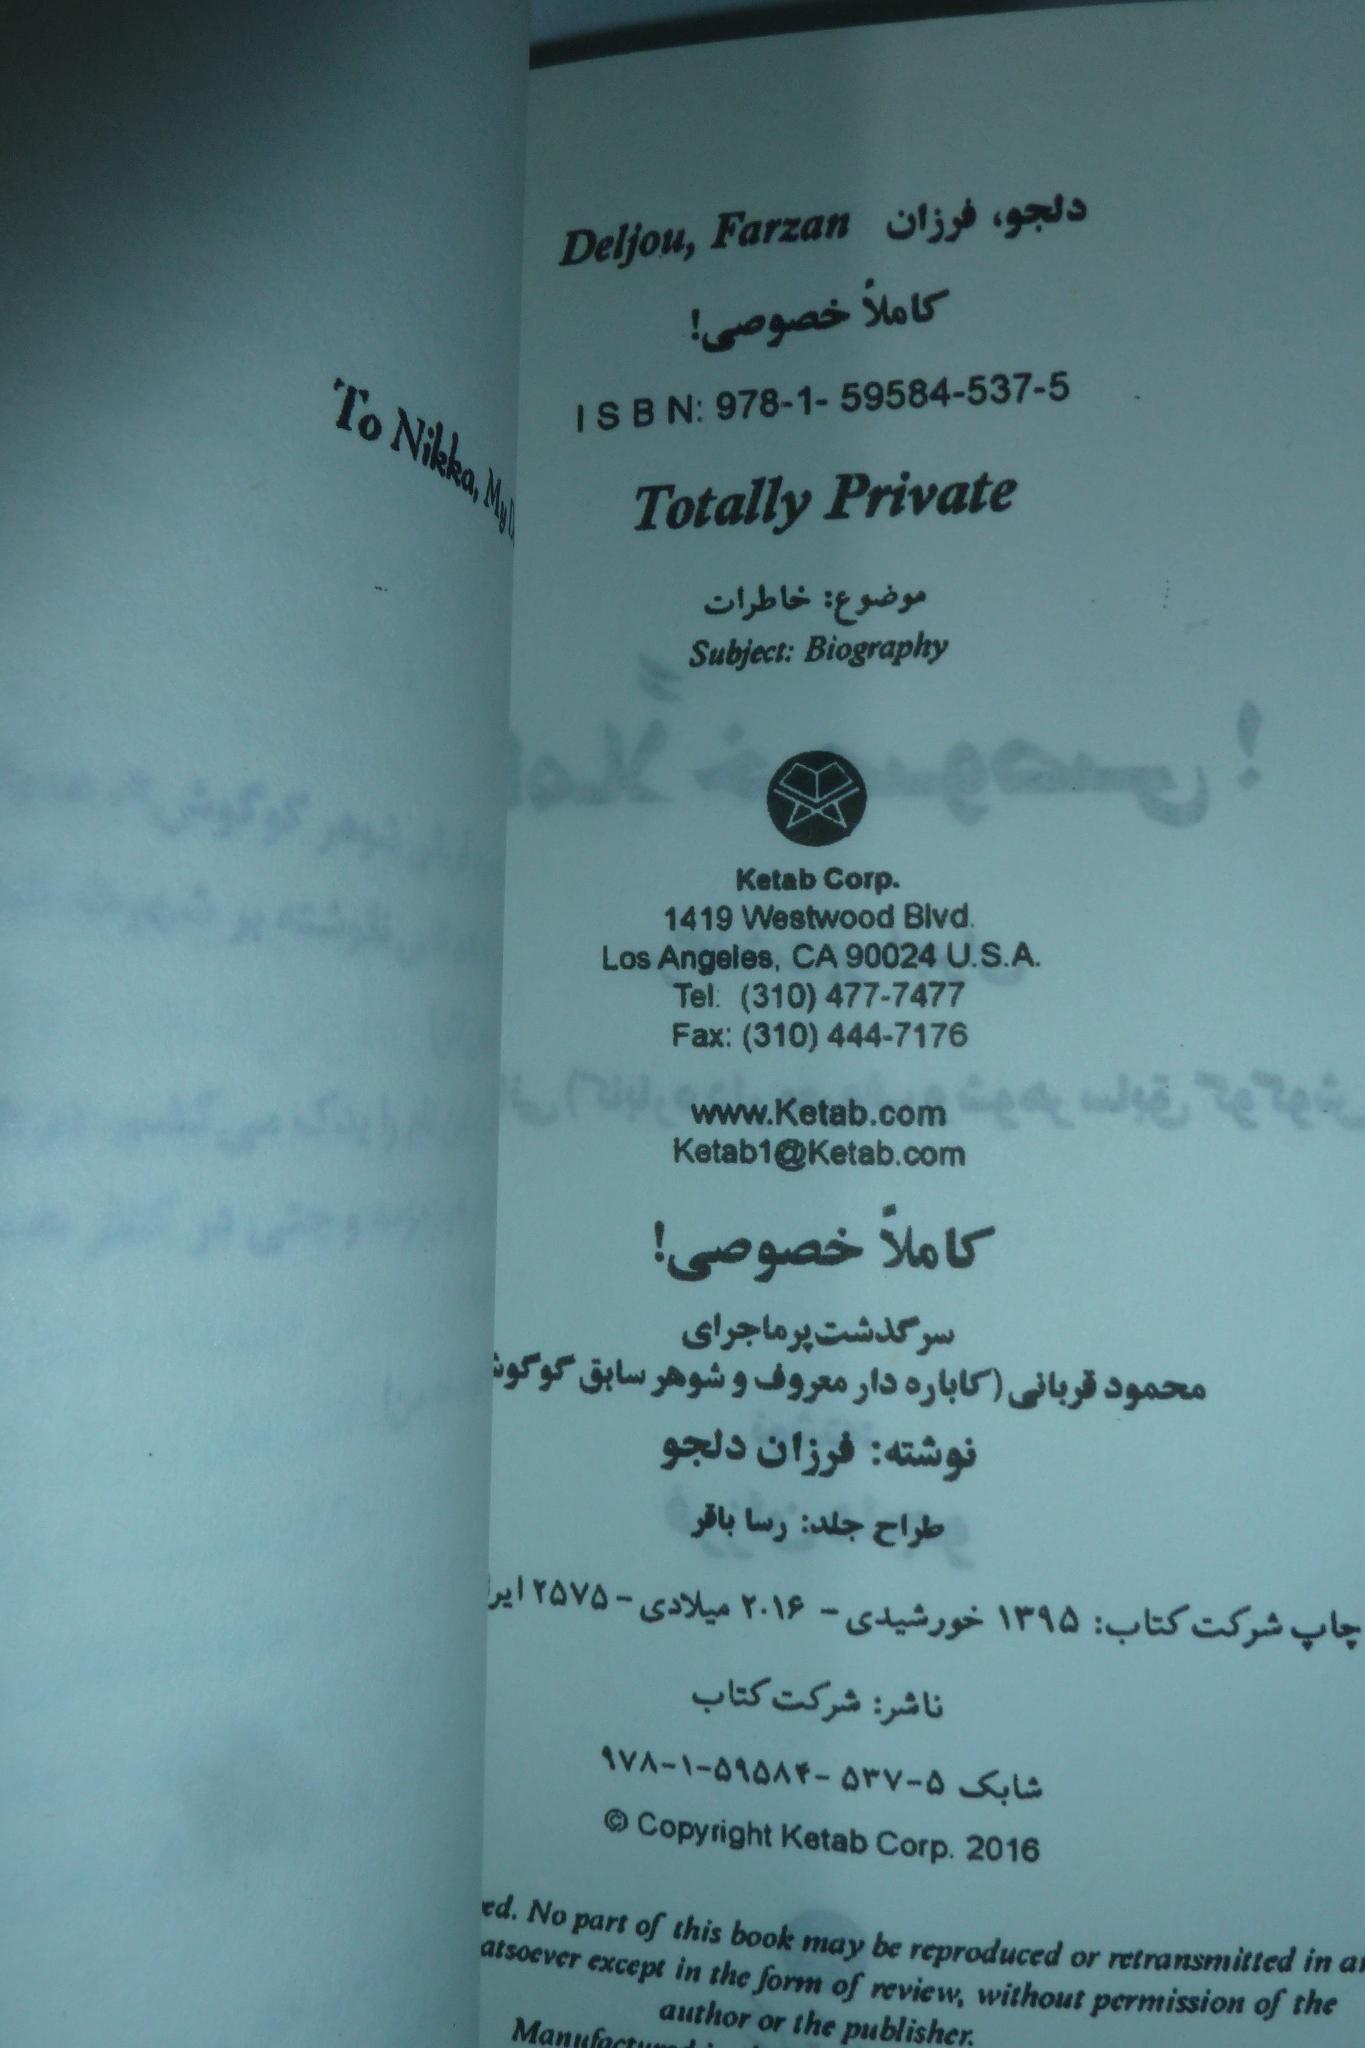 To Nikka, My
Deljou, Farzan دلجو، فرزان
کاملاً خصوصی!
I S B N: 978-1- 59584-537-5
Totally Private
موضوع: خاطرات
Subject: Biography
Ketab Corp.
1419 Westwood Blvd.
Los Angeles, CA 90024 U.S.A.
Tel: (310) 477-7477
Fax: (310) 444-7176
www.Ketab.com
Ketab1@Ketab.com
کاملاً خصوصی!
سرگذشت پرماجرای
محمود قربانی (کاباره دار معروف و شوهر سابق گوگوش
نوشته: فرزان دلجو
طراح جلد: رسا باقر
چاپ شرکت کتاب: ۱۳۹۵ خورشیدی - ۲۰۱۶ میلادی - ۲۵۷۵
ناشر: شرکت کتاب
شابک ۵-۵۳۷ -۵۹۵۸۴-۱-۹۷۸
© Copyright Ketab Corp. 2016
No part of this book may be reproduced or retransmitted in
except in the form of review, without permission of the
author or the publisher.